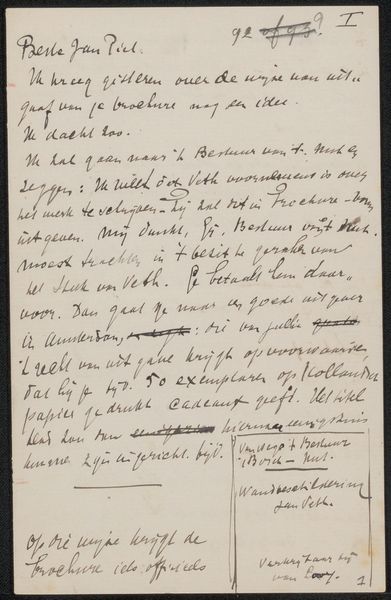 92 of 93? I
Beste Jan Piet.
Ik kreeg gisteren over de wijze van uit-
gaaf van je brochure nog een idee.
Ik dacht zoo.
Ik zal gaan naar 't Bestuur van 't
zeggen: Ik weet dat Veth voornemens is over
het werk te schrijven — hij zal dat in brochure-vorm
uitgeven. Mij dunkt, Gij, Bestuur v/h
moest trachten in 't bezit te geraken van
het stuk van Veth. Ge betaalt hem daar-
voor. Dan gaat ge naar een goede uitgever
in Amsterdam, die van jullie
't recht van uitgave krijgt op voorwaarde,
dat hij je bijv. 50 exemplaren op Hollandsch
papier gedrukt cadeau geeft. Het titel
blad kan dan hiernaa
kunnen zijn ingericht. bijv.
Vanwege 't Bestuur
Bosch-
Wandbeschildering
Jan Veth.
Verkrijgbaar bij
van Looy.
Op die wijze krijgt de
brochure iets officieels
1